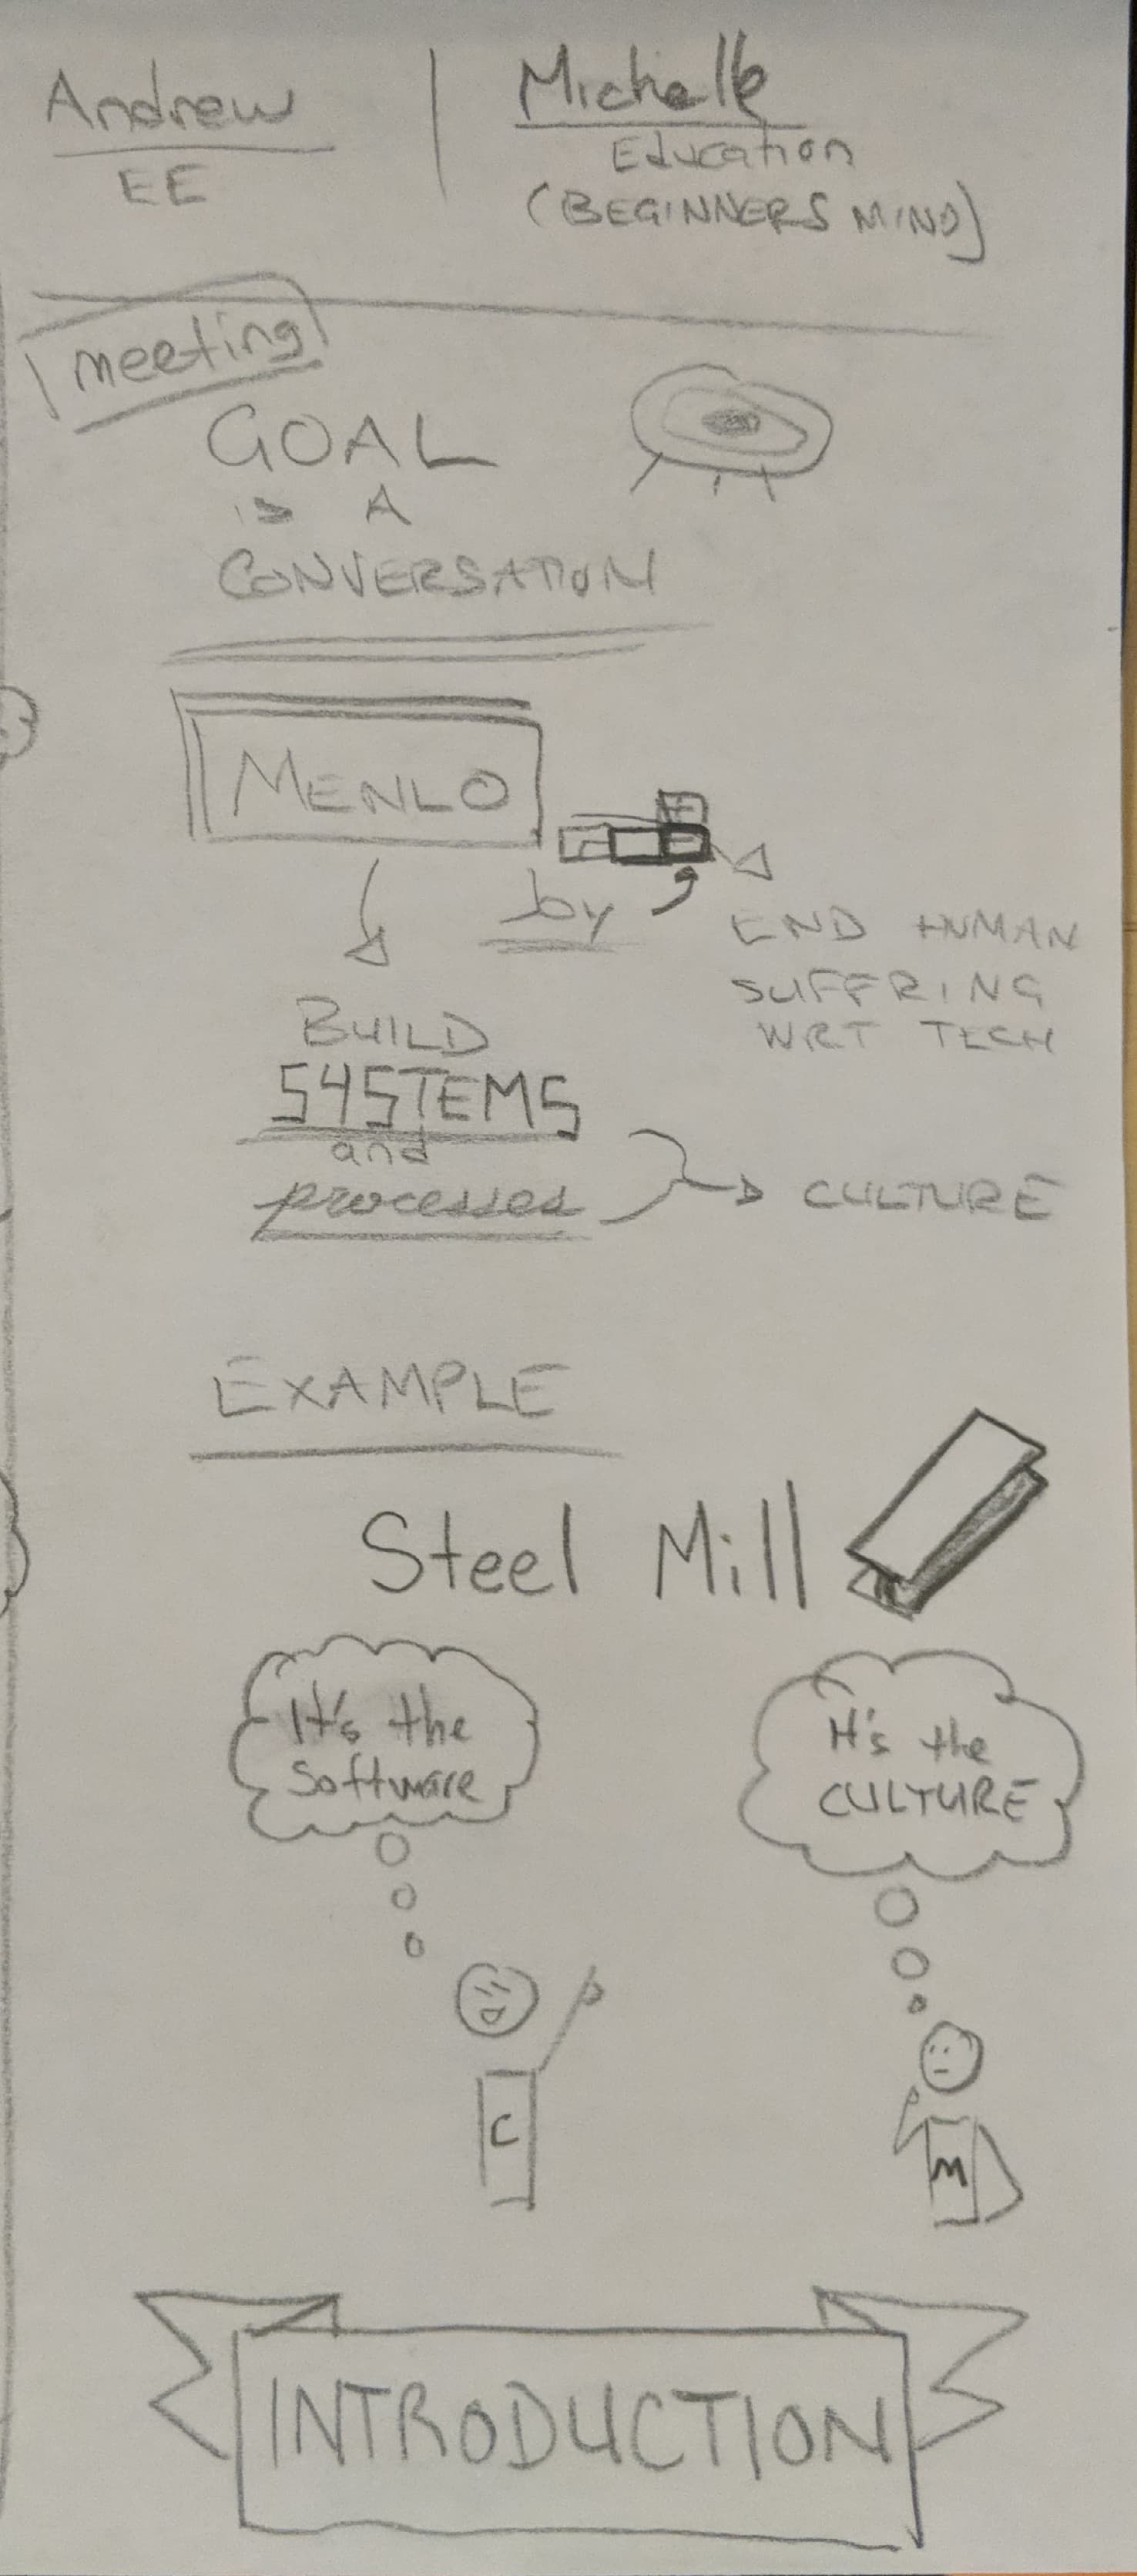 Andrew
EE
Michelle
Education
(BEGINNERS MIND)
meeting
GOAL
is A
CONVERSATION
MENLO
joy
END HUMAN
SUFFRING
WRT TECH
BUILD
SYSTEMS
and
processes
CULTURE
EXAMPLE
Steel Mill
It's the
Software
It's the
CULTURE
C
M
INTRODUCTION